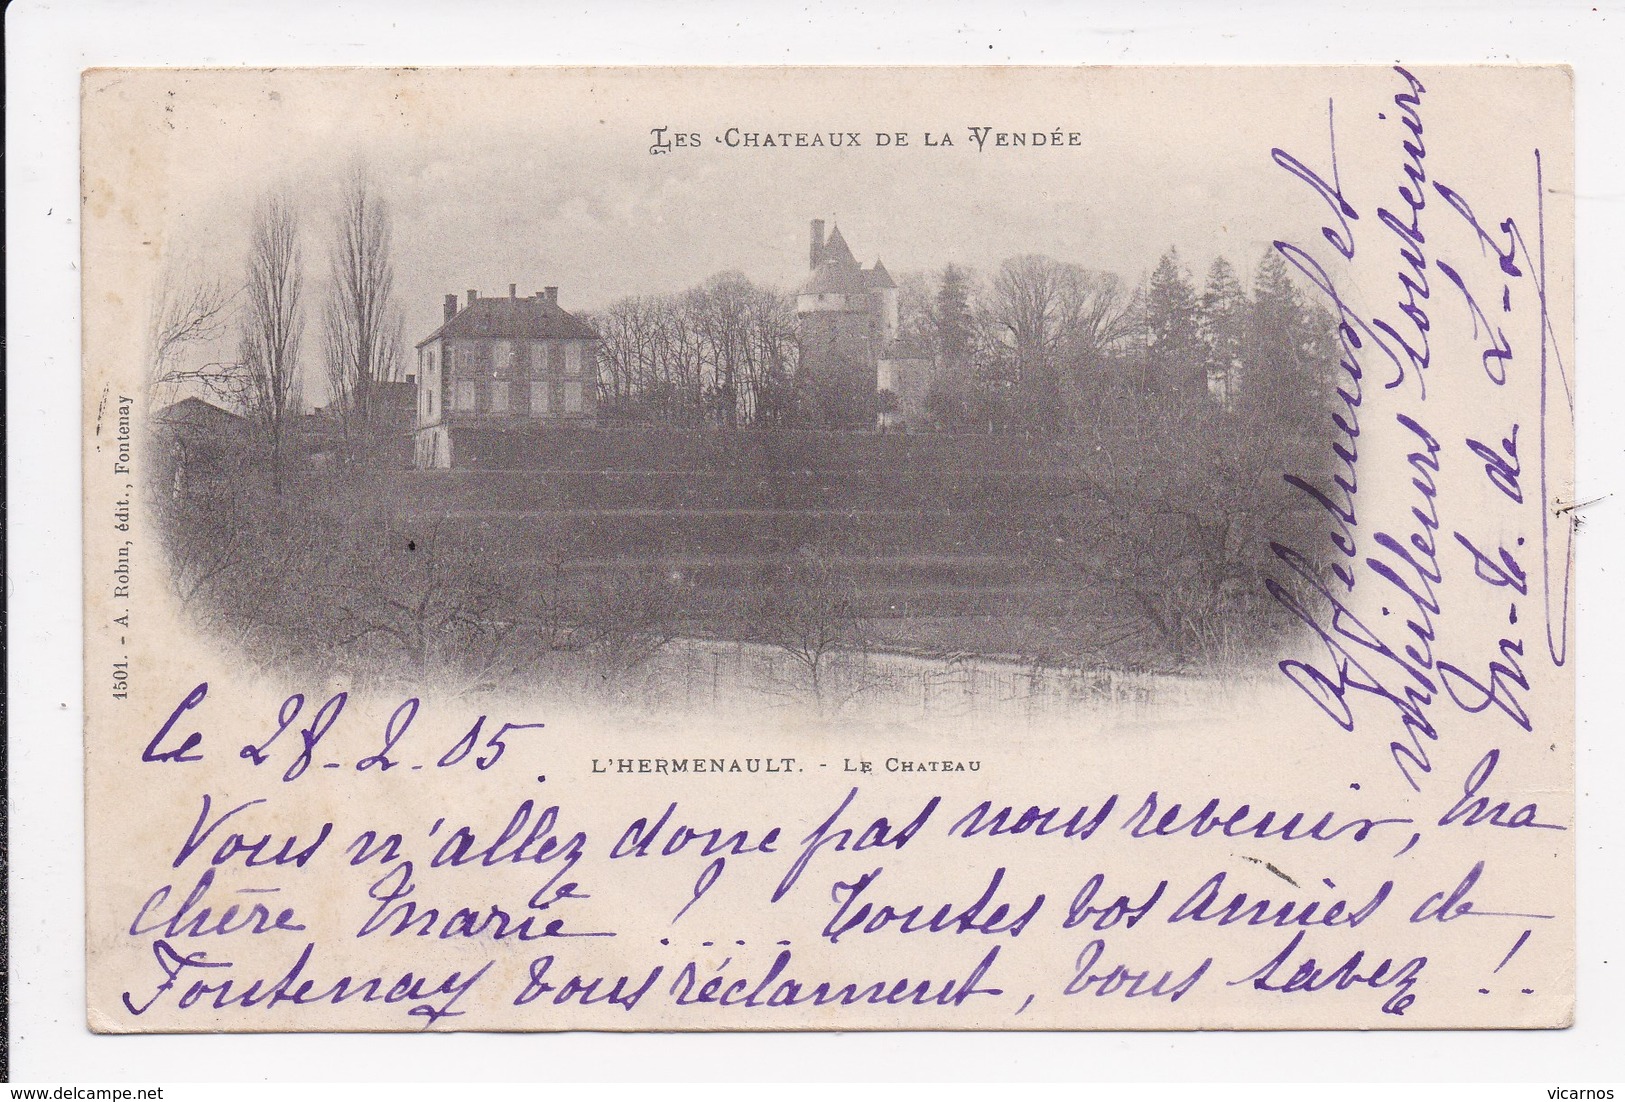 LES CHATEAUX DE LA VENDÉE
1501. - A. Robin, édit., Fontenay
L'HERMENAULT. - LE CHATEAU
Le 28-2-05.
Vous n'allez donc pas nous revenir, ma
chère Marie !.... Toutes vos Amies de
Fontenay vous réclament, vous savez !..
Affectueux et
meilleurs souvenirs
M-T. de L-L
www.delcampe.net
vicarnos